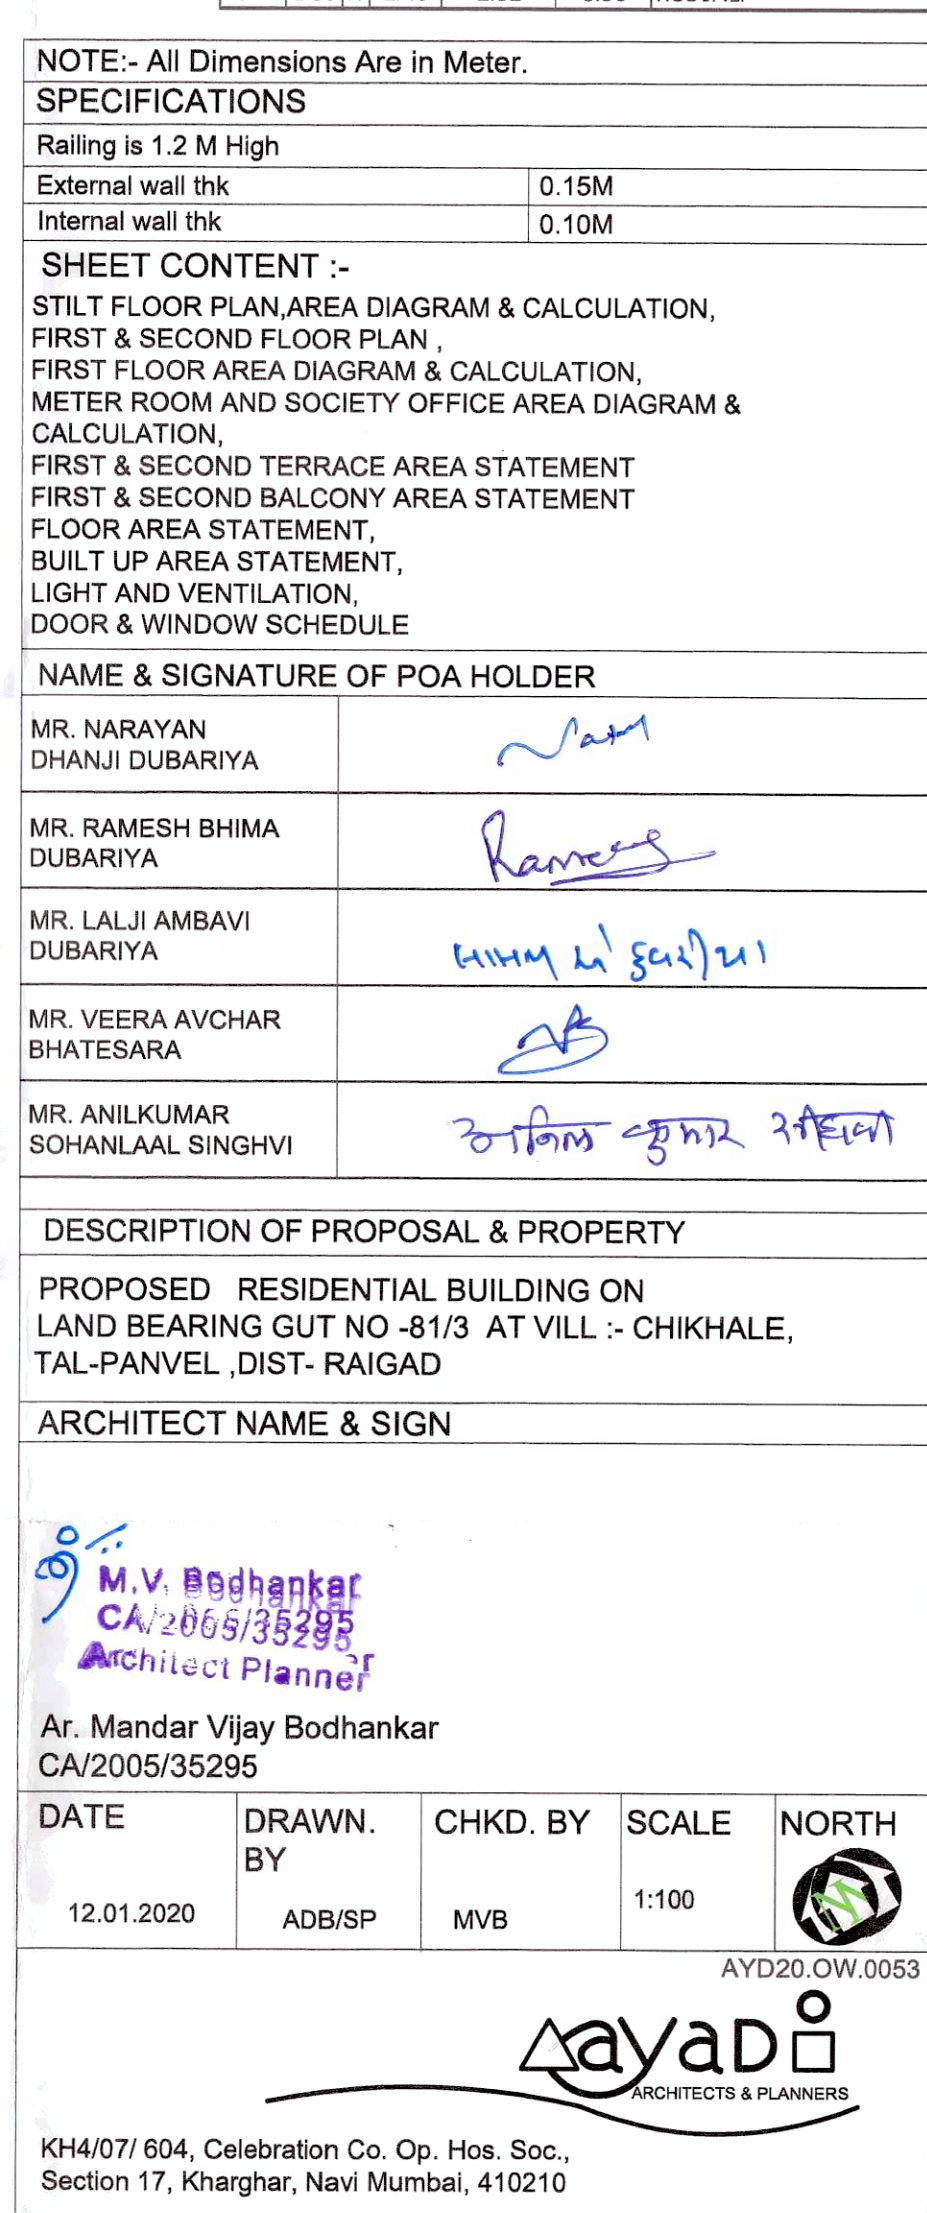 NOTE:- All Dimensions Are in Meter.
SPECIFICATIONS
Railing is 1.2 M High
External wall thk 0.15M
Internal wall thk 0.10M
SHEET CONTENT :-
STILT FLOOR PLAN,AREA DIAGRAM & CALCULATION,
FIRST & SECOND FLOOR PLAN ,
FIRST FLOOR AREA DIAGRAM & CALCULATION,
METER ROOM AND SOCIETY OFFICE AREA DIAGRAM &
CALCULATION,
FIRST & SECOND TERRACE AREA STATEMENT
FIRST & SECOND BALCONY AREA STATEMENT
FLOOR AREA STATEMENT,
BUILT UP AREA STATEMENT,
LIGHT AND VENTILATION,
DOOR & WINDOW SCHEDULE
NAME & SIGNATURE OF POA HOLDER
MR. NARAYAN
DHANJI DUBARIYA
MR. RAMESH BHIMA
DUBARIYA
Ramesh
MR. LALJI AMBAVI
DUBARIYA
MR. VEERA AVCHAR
BHATESARA
MR. ANILKUMAR
SOHANLAAL SINGHVI
अनिल कुमार
DESCRIPTION OF PROPOSAL & PROPERTY
PROPOSED RESIDENTIAL BUILDING ON
LAND BEARING GUT NO -81/3 AT VILL :- CHIKHALE,
TAL-PANVEL ,DIST- RAIGAD
ARCHITECT NAME & SIGN
M.V. Bodhankar
CA/2005/35295
Architect Planner
Ar. Mandar Vijay Bodhankar
CA/2005/35295
DATE DRAWN. BY CHKD. BY SCALE NORTH
12.01.2020 ADB/SP MVB 1:100
AYD20.OW.0053
AayaDi
ARCHITECTS & PLANNERS
KH4/07/ 604, Celebration Co. Op. Hos. Soc.,
Section 17, Kharghar, Navi Mumbai, 410210